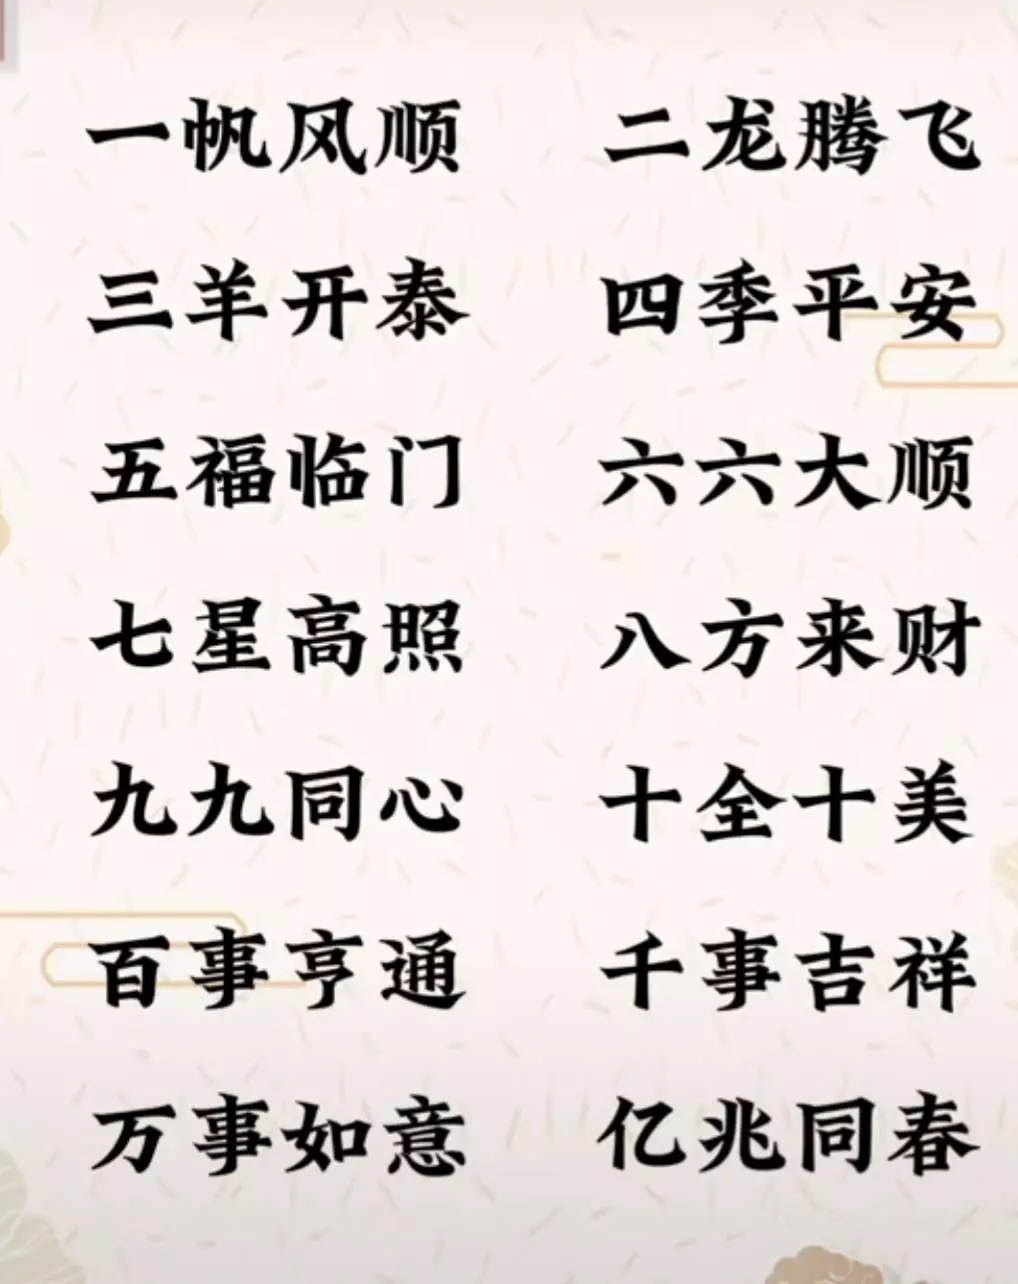 一帆风顺 二龙腾飞
三羊开泰 四季平安
五福临门 六六大顺
七星高照 八方来财
九九同心 十全十美
百事亨通 千事吉祥
万事如意 亿兆同春